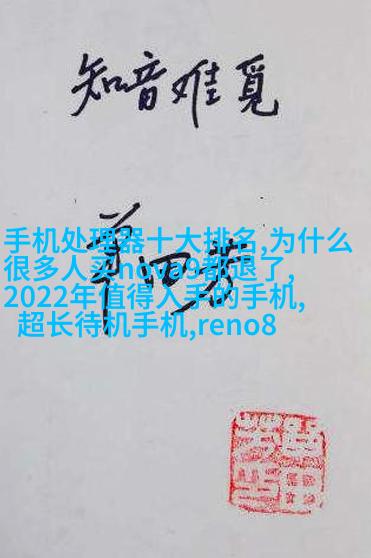 知音难觅
手机处理器十大排名,为什么
很多人买nova9都退了,
2022年值得入手的手机,
超长待机手机,reno8
单田芳